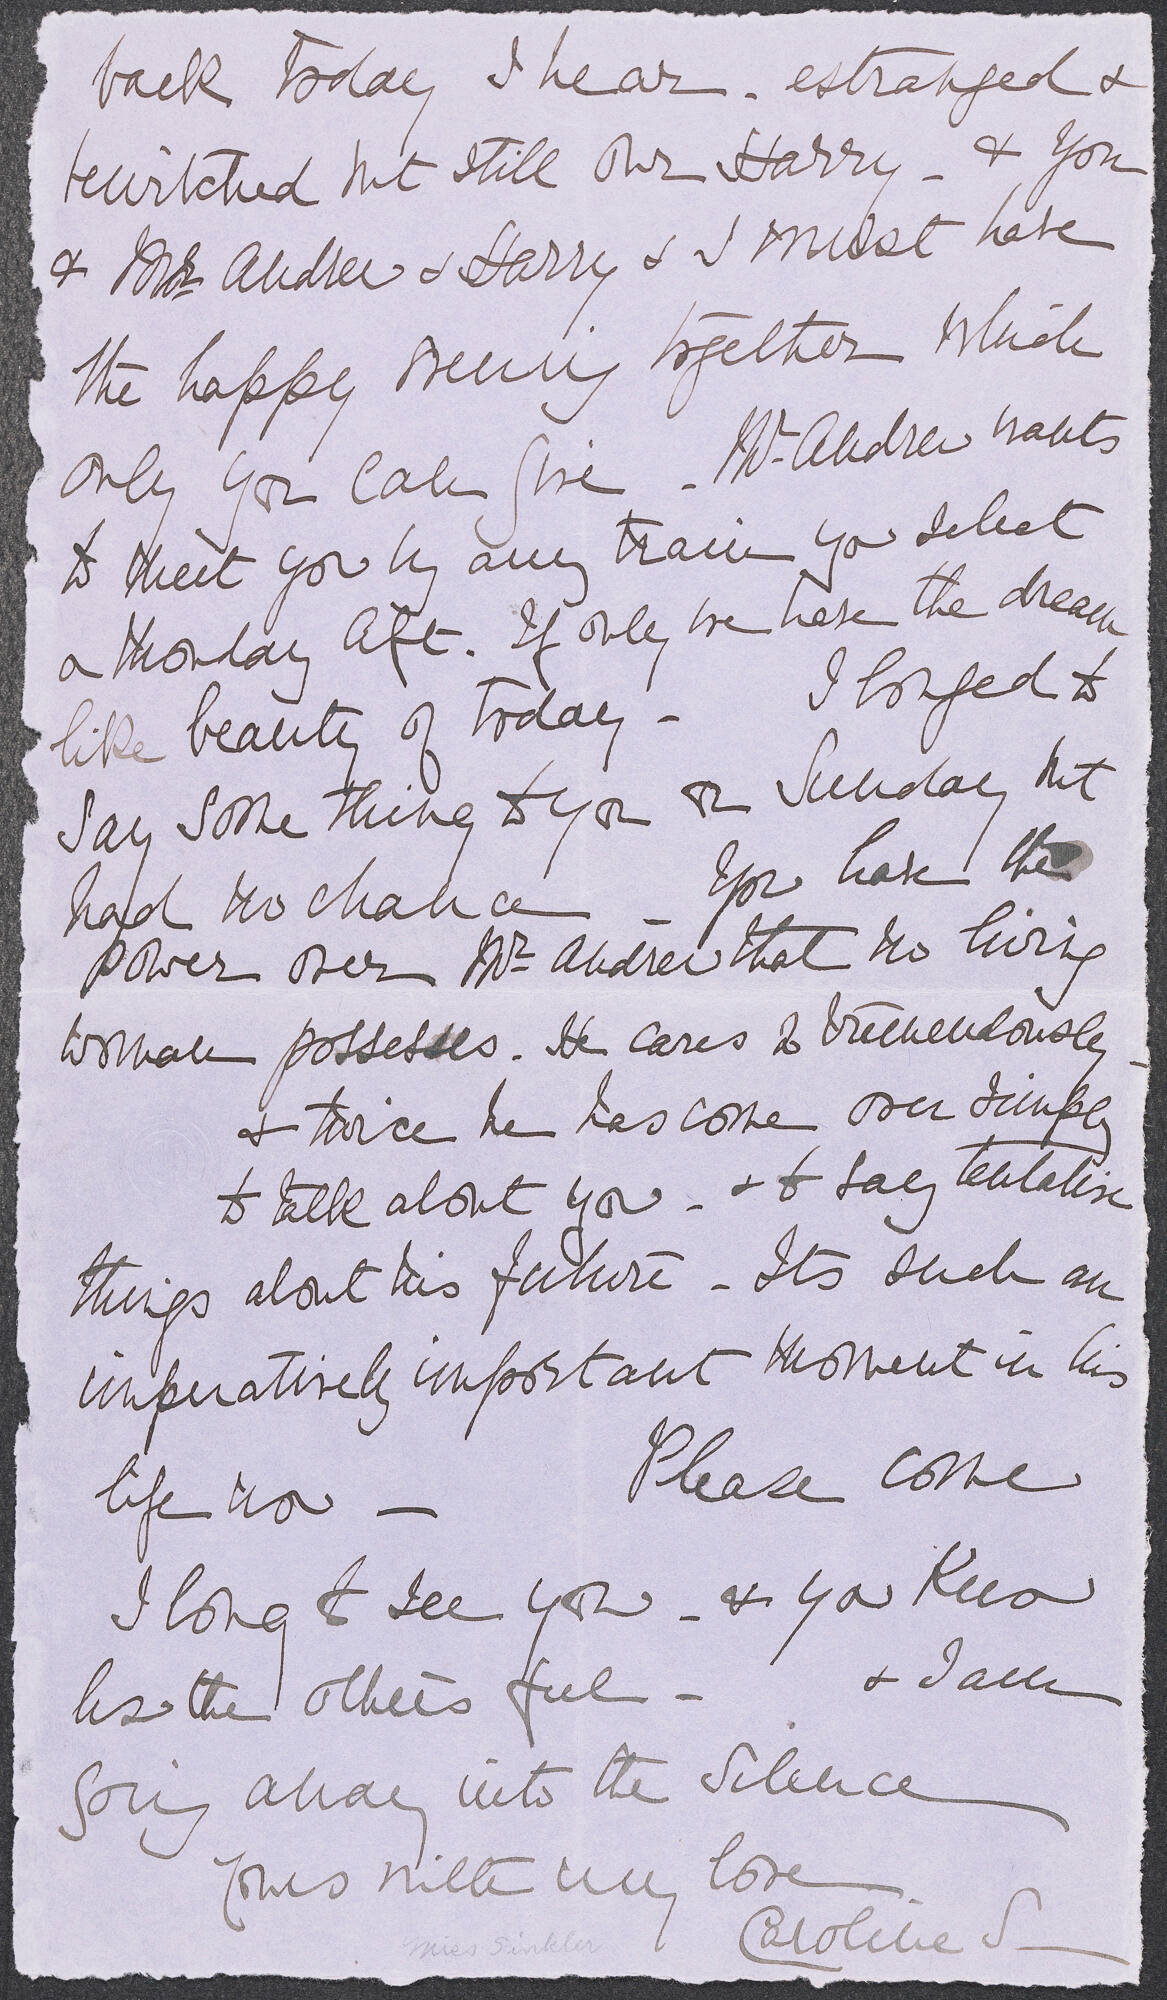 back today I hear - estranged &
bewitched but still our Harry - & you
& Mr. Andrew & Harry & I must have
the happy evening together which
only you can give - Mr. Andrew wants
to meet you by any train you select
a Monday Aft. If only we have the dream
like beauty of today - I longed to
say some thing to you on Sunday but
had no chance - You have the
power over Mr. Andrew that no living
woman possesses. He cares so tremendously -
& twice he has come over simply
to talk about you - & to say tentative
things about his future - Its such an
imperatively important moment in his
life now - Please come
I long to see you - & you know
how the others feel - & I am
going away into the silence
Yours with my love
Caroline S
Miss Sinkler